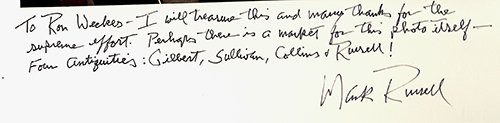 To Ron Weekes - I will treasure this and many thanks for the
supreme effort. Perhaps there is a market for this photo itself -
Four Antiquities: Gilbert, Sullivan, Collins & Russell!
Mark Russell